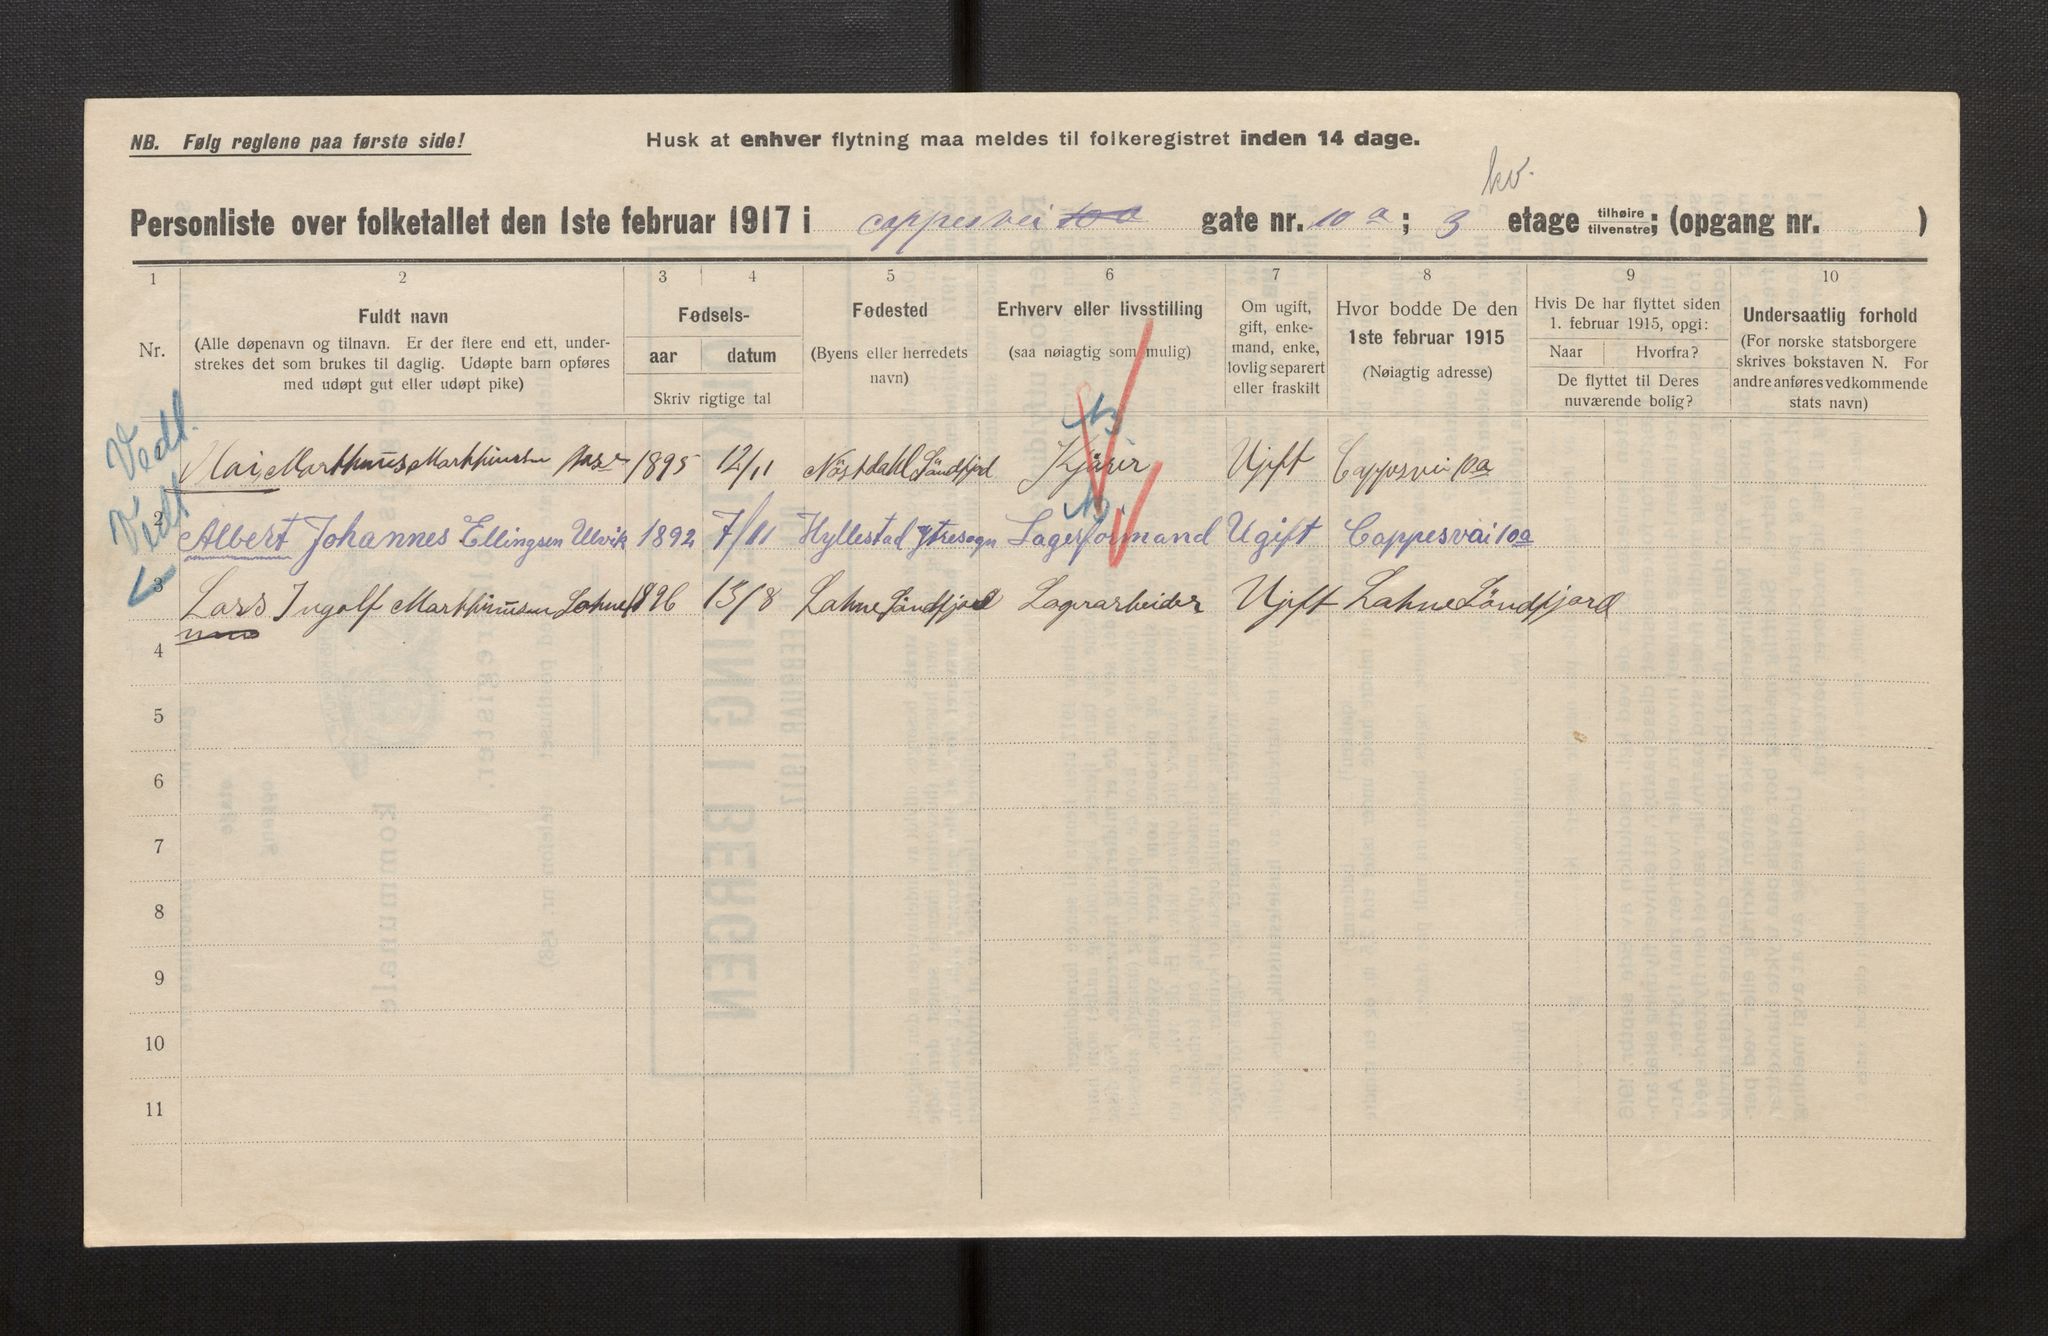 NB. Følg reglene paa første side!
Husk at enhver flytning maa meldes til folkeregistret inden 14 dage.
hv.
Personliste over folketallet den 1ste februar 1917 i Cappesvei 10 a gate nr. 10 a ; 3 etage tilhøire tilvenstre; (opgang nr. )
1 2 3 4 5 6 7 8 9 10
Nr.
Fuldt navn
(Alle døpenavn og tilnavn. Er der flere end ett, under-
strekes det som brukes til daglig. Udøpte barn opføres
med udøpt gut eller udøpt pike)
Fødsels-
aar datum
Skriv rigtige tal
Fødested
(Byens eller herredets
navn)
Erhverv eller livsstilling
(saa nøiagtig som mulig)
Om ugift,
gift, enke-
mand, enke,
lovlig separert
eller fraskilt
Hvor bodde De den
1ste februar 1915
(Nøiagtig adresse)
Hvis De har flyttet siden
1. februar 1915, opgi:
Naar Hvorfra?
De flyttet til Deres
nuværende bolig?
Undersaatlig forhold
(For norske statsborgere
skrives bokstaven N. For
andre anføres vedkommende
stats navn)
Vedl.
Marthinus Marthinsen 1895 12/11 Nöstdahl Söndfjord Kjörer Ugift Cappesvei 10a
Vedl
2 Albert Johannes Ellingsen Ulvik 1892 7/11 Hyllestad Ytresogn Lagerformand Ugift Cappesvei 10a
3 Lars Ingolf Marthinusen 1896 13/8 Lahne Söndfjord Lagerarbeider Ugift Lahne Söndfjord
4
5
6
7
8
9
10
11